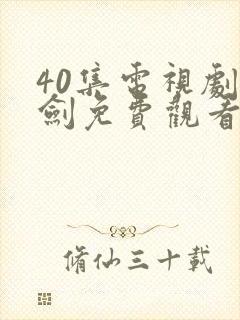 40集電視劇
劍免費觀看
脩仙三十載